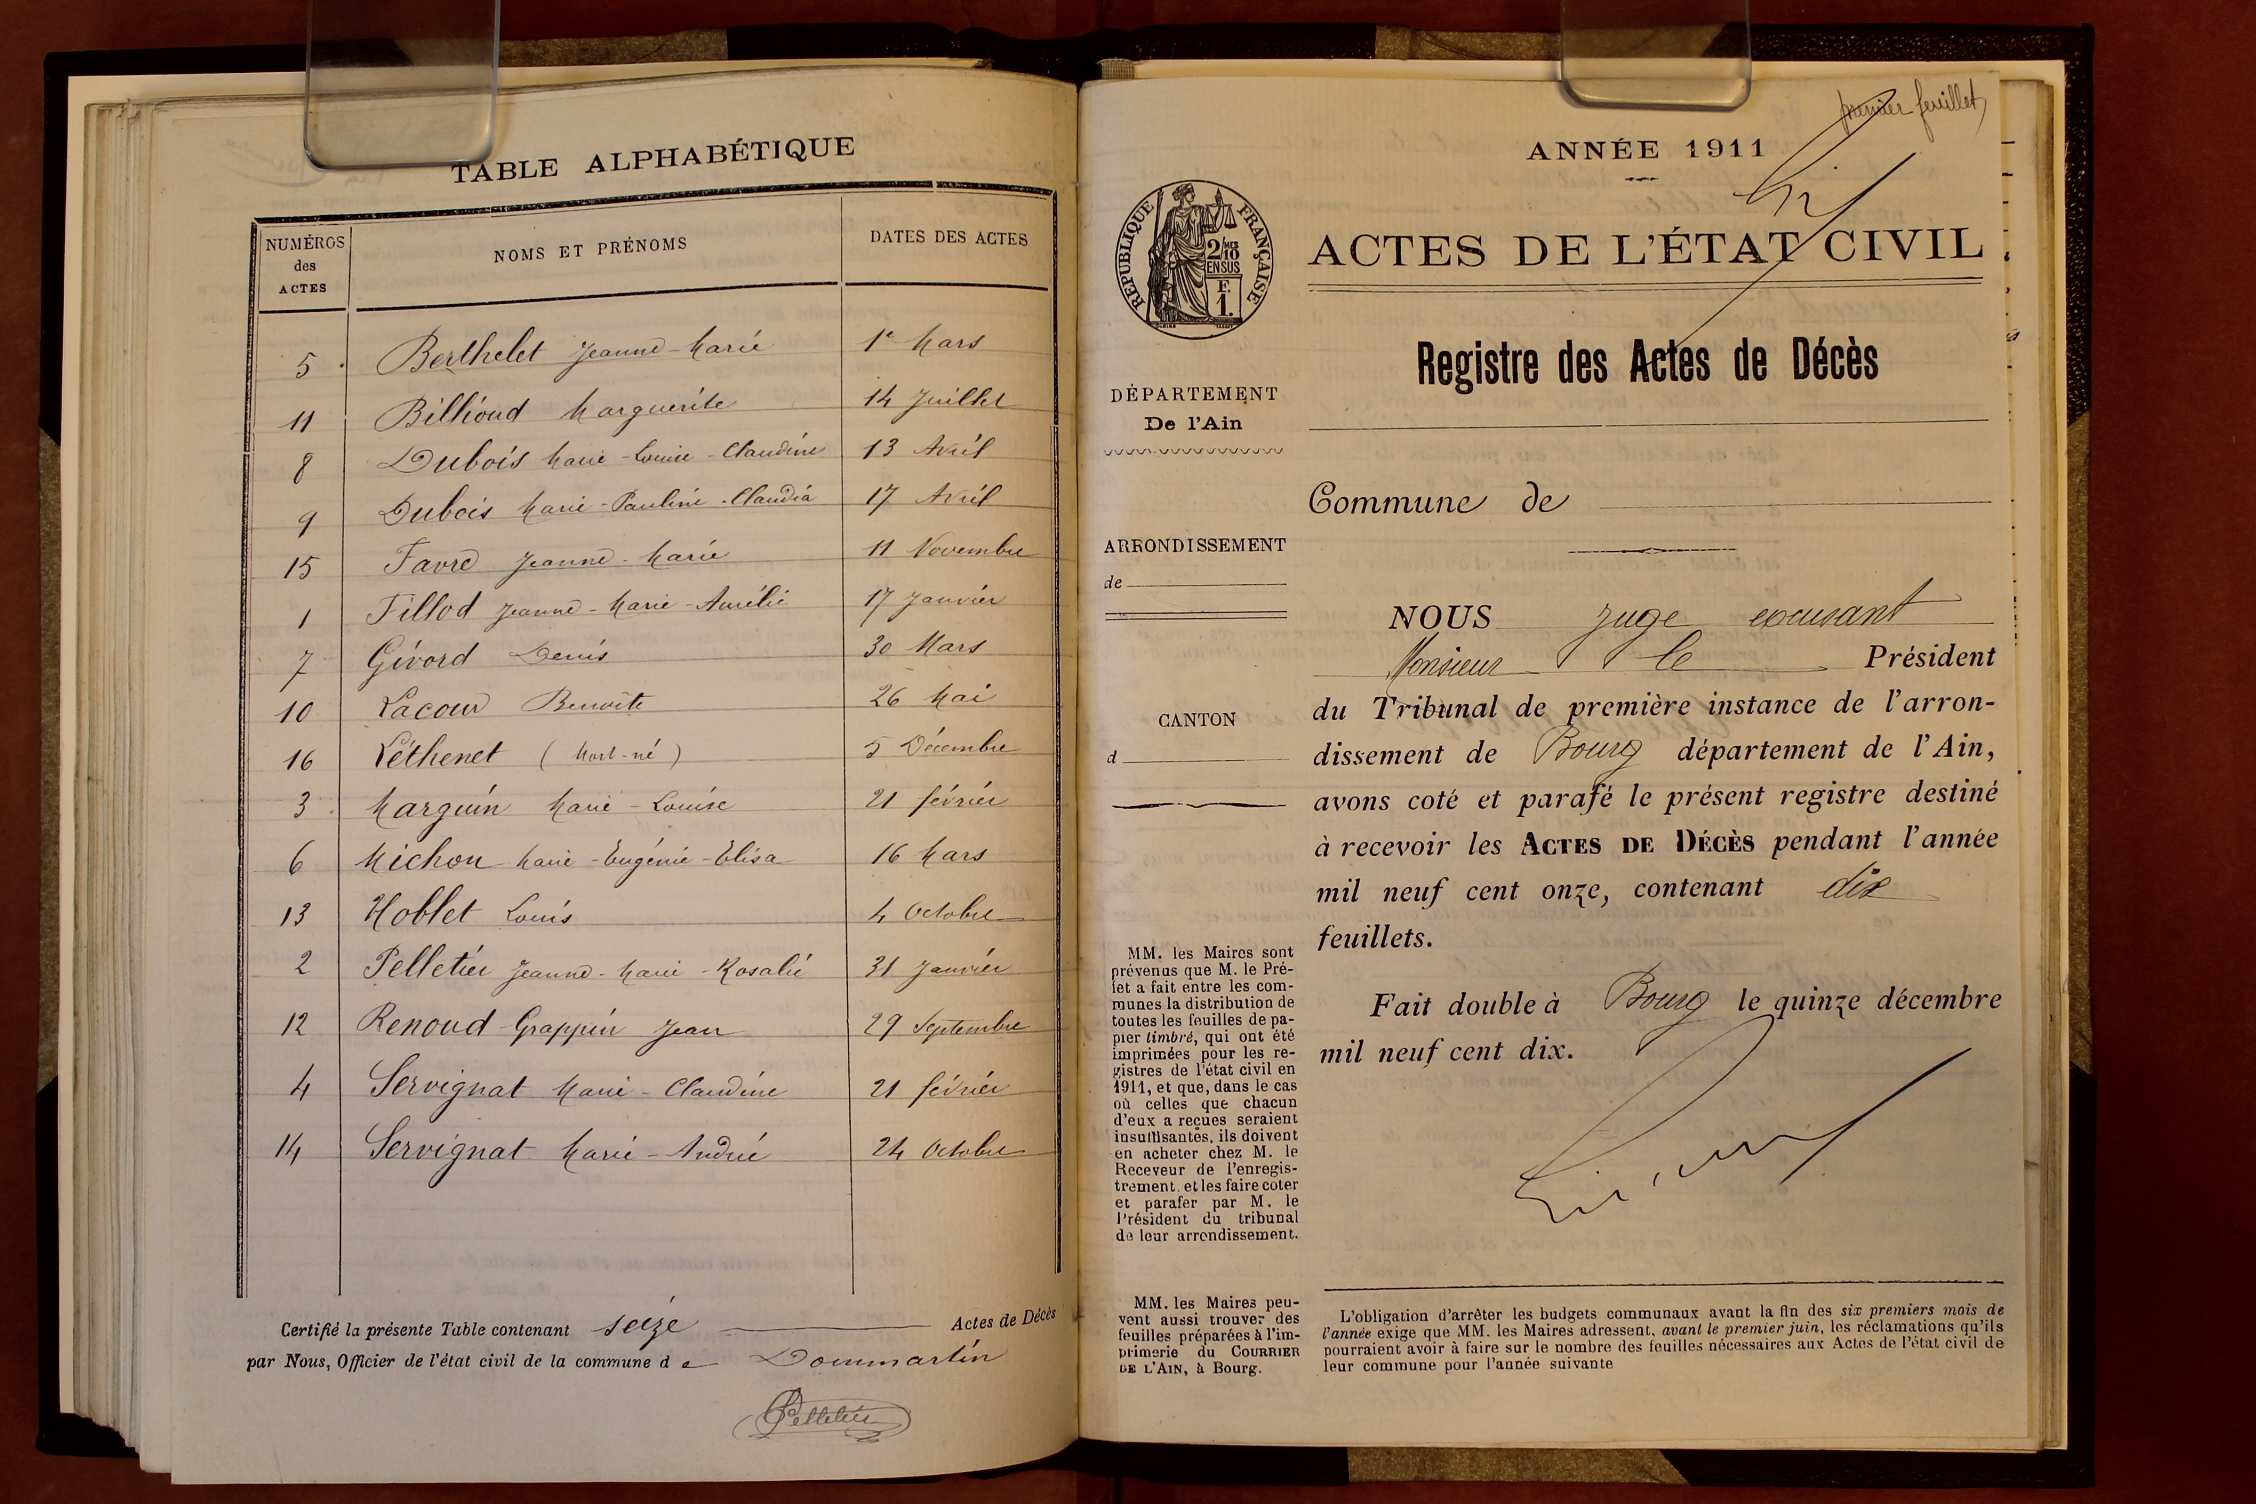 TABLE ALPHABÉTIQUE
NUMÉROS des ACTES
NOMS ET PRÉNOMS
DATES DES ACTES
5 Berthelet Jeanne-Marie 1e Mars
11 Billioud Marguerite 14 Juillet
8 Dubois Marie-Louise-Claudine 13 Avril
9 Dubois Marie-Pauline-Claudia 17 Avril
15 Favre Jeanne-Marie 11 Novembre
1 Fillod Jeanne-Marie-Aurélie 17 Janvier
7 Givord Denis 30 Mars
10 Lacour Benoîte 26 Mai
16 Péthenet (Mort-né) 5 Décembre
3 Marguin Marie-Louise 21 février
6 Michon Marie-Eugénie-Elisa 16 Mars
13 Noblet Louis 4 Octobre
2 Pelletier Jeanne-Marie-Rosalie 31 Janvier
12 Renoud-Grappin Jean 29 Septembre
4 Servignat Marie-Claudine 21 février
14 Servignat Marie-Andrée 24 Octobre
Certifié la présente Table contenant seize Actes de Décès
par Nous, Officier de l'état civil de la commune de Dommartin
Pelletier
premier feuillet
ANNÉE 1911
RÉPUBLIQUE FRANÇAISE
2/10
EN SUS
F.
1.
ACTES DE L'ÉTAT CIVIL
Registre des Actes de Décès
DÉPARTEMENT
De l'Ain
Commune de
ARRONDISSEMENT
de
CANTON
d
NOUS Juge excusant
Monsieur le Président
du Tribunal de première instance de l'arron-
dissement de Bourg département de l'Ain,
avons coté et parafé le présent registre destiné
à recevoir les ACTES DE DÉCÈS pendant l'année
mil neuf cent onze, contenant dix
feuillets.
Fait double à Bourg le quinze décembre
mil neuf cent dix.
MM. les Maires sont
prévenus que M. le Pré-
fet a fait entre les com-
munes la distribution de
toutes les feuilles de pa-
pier timbré, qui ont été
imprimées pour les re-
gistres de l'état civil en
1911, et que, dans le cas
où celles que chacun
d'eux a reçues seraient
insuffisantes, ils doivent
en acheter chez M. le
Receveur de l'enregis-
trement, et les faire coter
et parafer par M. le
Président du tribunal
de leur arrondissement.
MM. les Maires peu-
vent aussi trouver des
feuilles préparées à l'im-
primerie du COURRIER
DE L'AIN, à Bourg.
L'obligation d'arrêter les budgets communaux avant la fin des six premiers mois de
l'année exige que MM. les Maires adressent, avant le premier juin, les réclamations qu'ils
pourraient avoir à faire sur le nombre des feuilles nécessaires aux Actes de l'état civil de
leur commune pour l'année suivante